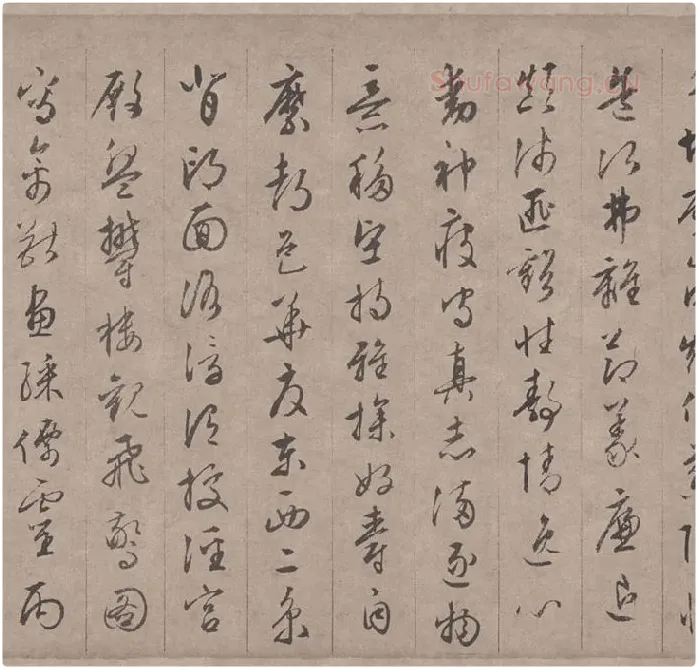 切磨箴規仁慈隱惻
造次弗離節義廉退
顛沛匪虧性靜情逸心
動神疲守真志滿逐物
意移堅持雅操好爵自
縻都邑華夏東西二京
背邙面洛浮渭據涇宮
殿盤鬱樓觀飛驚圖
寫禽獸畫綵僊靈丙